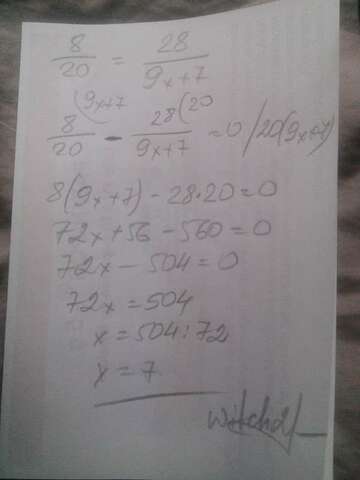 8/20 = 28/9x+7
(9x+7 (20
8/20 - 28/9x+7 = 0 / 20(9x+7)
8(9x+7) - 28·20 = 0
72x + 56 - 560 = 0
72x - 504 = 0
72x = 504
x = 504 : 72
x = 7